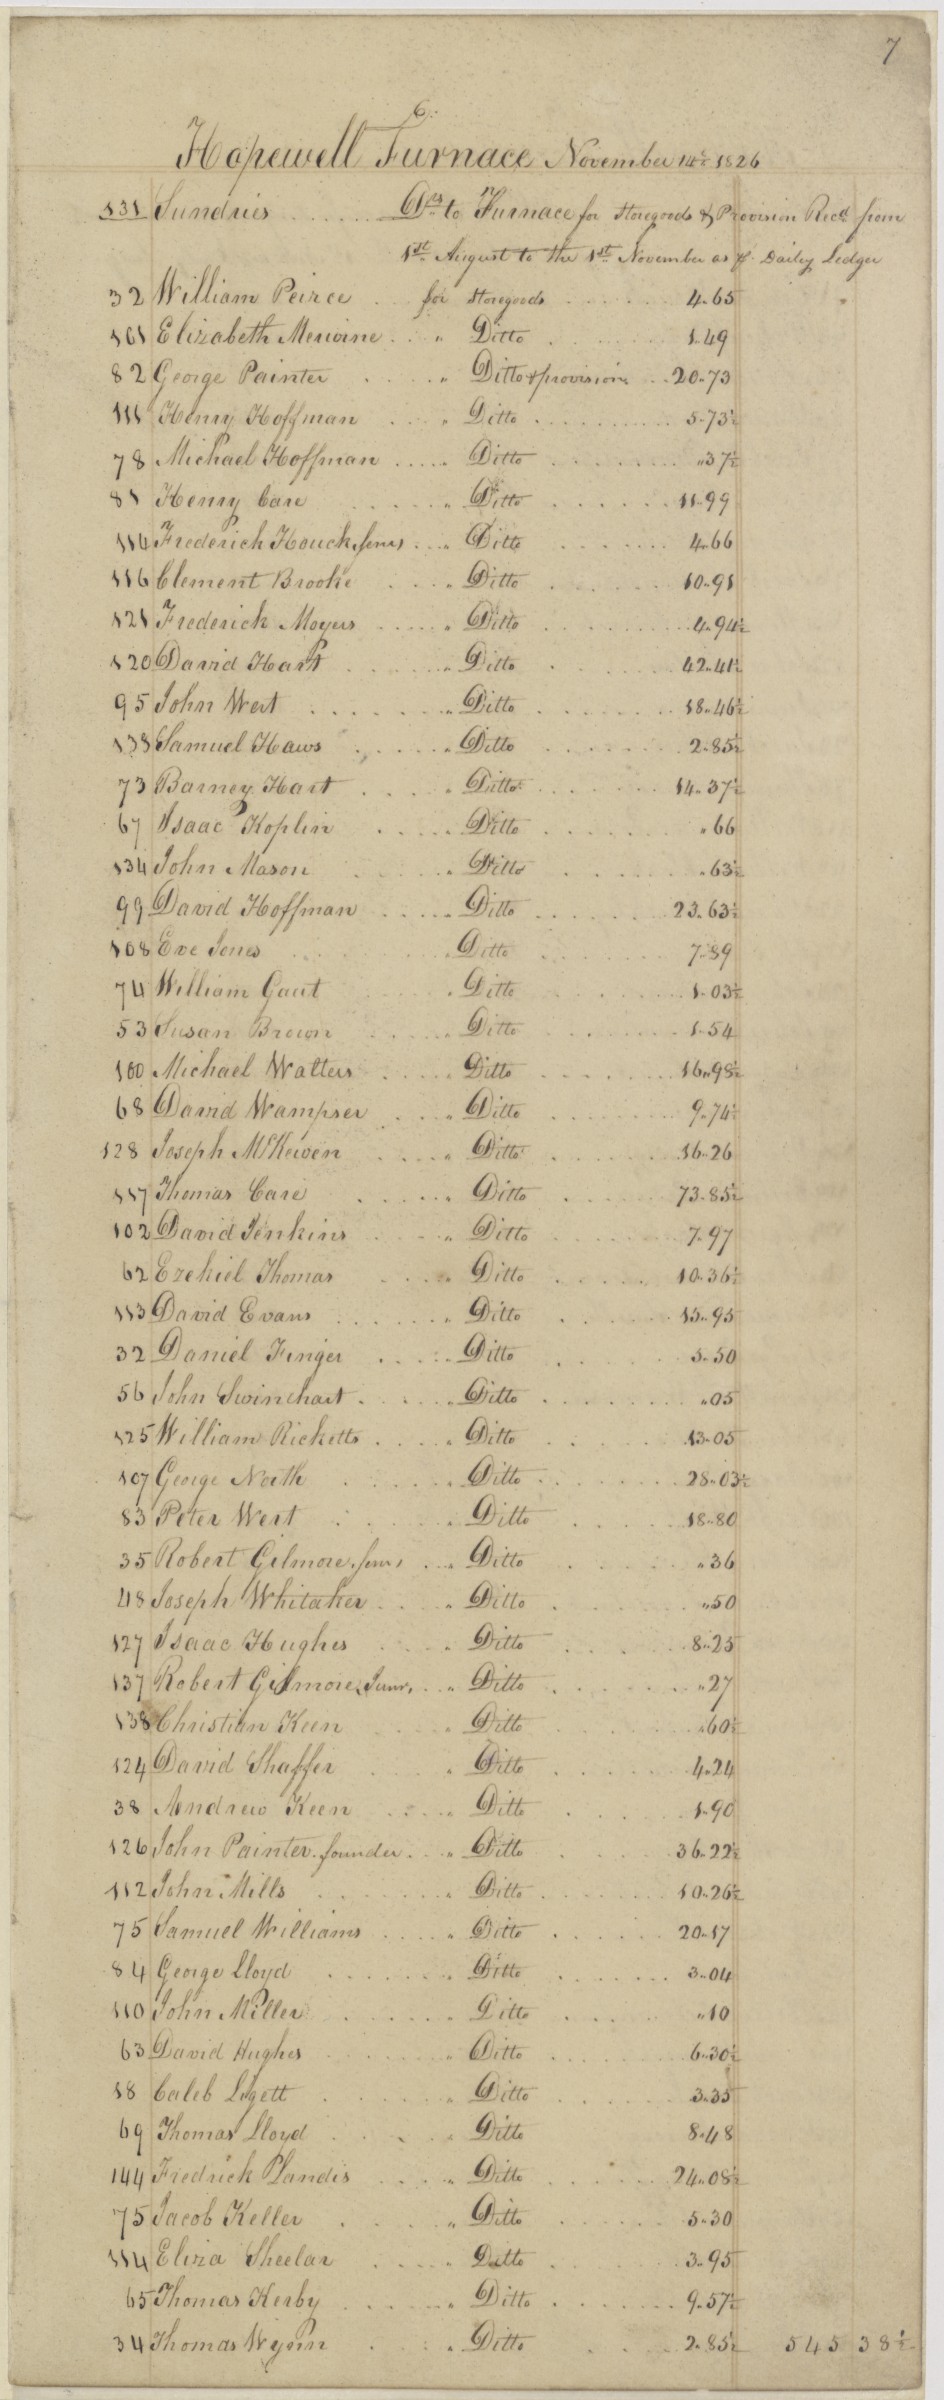 7
6
Hopewell Furnace November 14th 1826
131 Sundries ...... Drs to Furnace for Storegoods & Provision Recd from
1st August to the 1st November as pr Daily Ledger
32 William Peirce .. for Storegoods ...... 4.65
101 Elizabeth Merwine .. " Ditto ...... 1.49
82 George Painter ..... " Ditto & provisions .. 20.73
111 Henry Hoffman .... " Ditto ...... 5.73½
78 Michael Hoffman ..... " Ditto ...... "37½
81 Henry Care ..... " Ditto ...... 11.99
114 Frederich Houck Senr .. " Ditto ...... 4.66
116 Clement Brooke .... " Ditto ...... 10.91
121 Frederick Moyers ..... " Ditto ...... 4.94½
120 David Hart ..... " Ditto ...... 42.41½
95 John Wert ...... " Ditto ...... 18.46½
133 Samuel Haws ..... " Ditto ...... 2.85½
73 Barney Hart ..... " Ditto ...... 14.37½
67 Isaac Koplin .... " Ditto ...... "66
134 John Mason .... " Ditto ...... "63½
99 David Hoffman .... " Ditto ...... 23.63½
108 Eve Jones ..... " Ditto ...... 7.89
74 William Gant .... " Ditto ...... 1.03½
53 Susan Brown .... " Ditto ...... 1.54
100 Michael Walters .... " Ditto ...... 16.98½
68 David Wampser ... " Ditto ...... 9.74½
128 Joseph McKewen .... " Ditto ...... 16.26
117 Thomas Care ..... " Ditto ...... 73.85½
102 David Jenkins .... " Ditto ...... 7.97
62 Ezekiel Thomas .... " Ditto ...... 10.36½
113 David Evans ..... " Ditto ...... 15.95
32 Daniel Finger .... " Ditto ...... 5.50
56 John Swinehart ..... " Ditto ...... "05
125 William Ricketts .... " Ditto ...... 13.05
107 George North ..... " Ditto ...... 28.03½
83 Peter Wert ..... " Ditto ...... 18.80
35 Robert Gilmore Senr .. " Ditto ...... "36
48 Joseph Whitaker ... " Ditto ...... "50
127 Isaac Hughes .... " Ditto ...... 8.25
137 Robert Gilmore Junr .. " Ditto ...... "27
138 Christian Keen .... " Ditto ...... "60½
124 David Shaffer .... " Ditto ...... 4.24
38 Andrew Keen .... " Ditto ...... 1.90
126 John Painter founder .. " Ditto ...... 36.22½
112 John Mills ..... " Ditto ...... 10.26½
75 Samuel Williams .... " Ditto ...... 20.17
84 George Lloyd ...... " Ditto ...... 3.04
110 John Miller ..... " Ditto ...... "10
63 David Hughes ..... " Ditto ...... 6.30½
18 Caleb Ligett ..... " Ditto ...... 3.35
69 Thomas Lloyd .... " Ditto ...... 8.48
144 Fredrick Plandis .... " Ditto ...... 24.08½
75 Jacob Keller .... " Ditto ...... 5.30
114 Eliza Sheelar .... " Ditto ...... 3.95
65 Thomas Kerby ..... " Ditto ...... 9.57½
34 Thomas Wynn .... " Ditto ...... 2.85½ 545 38½